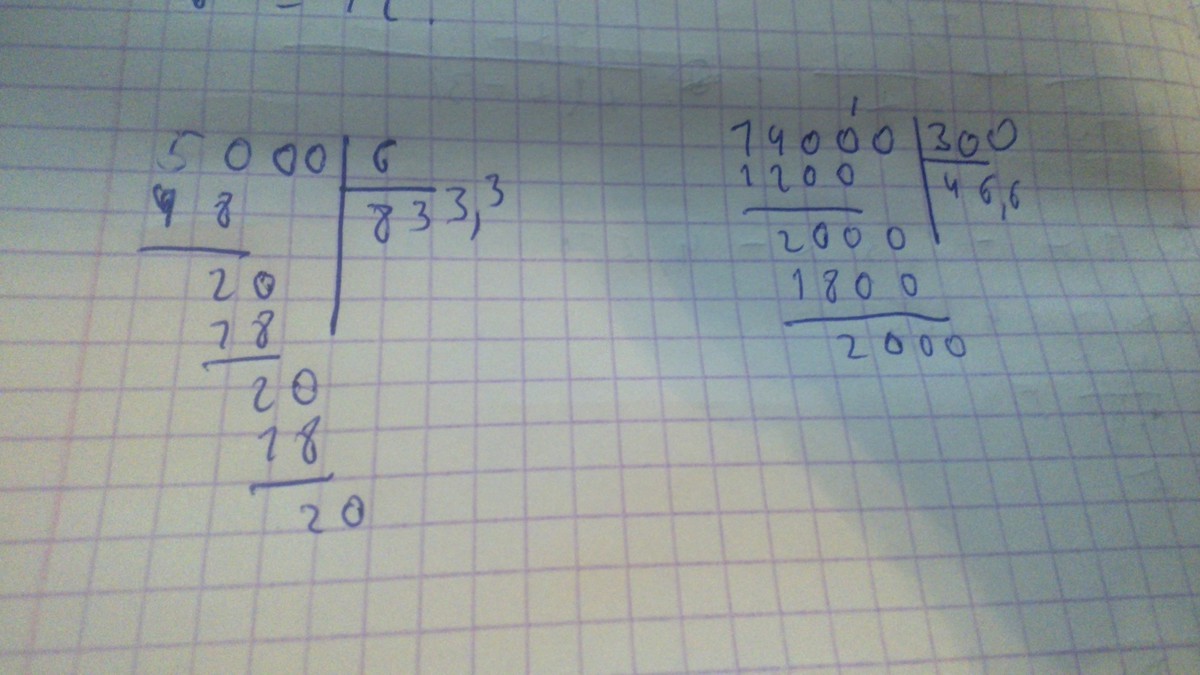 = 12.
5000 6
48 833,3
20
18
20
18
20
14000 300
1200 46,6
2000
1800
2000